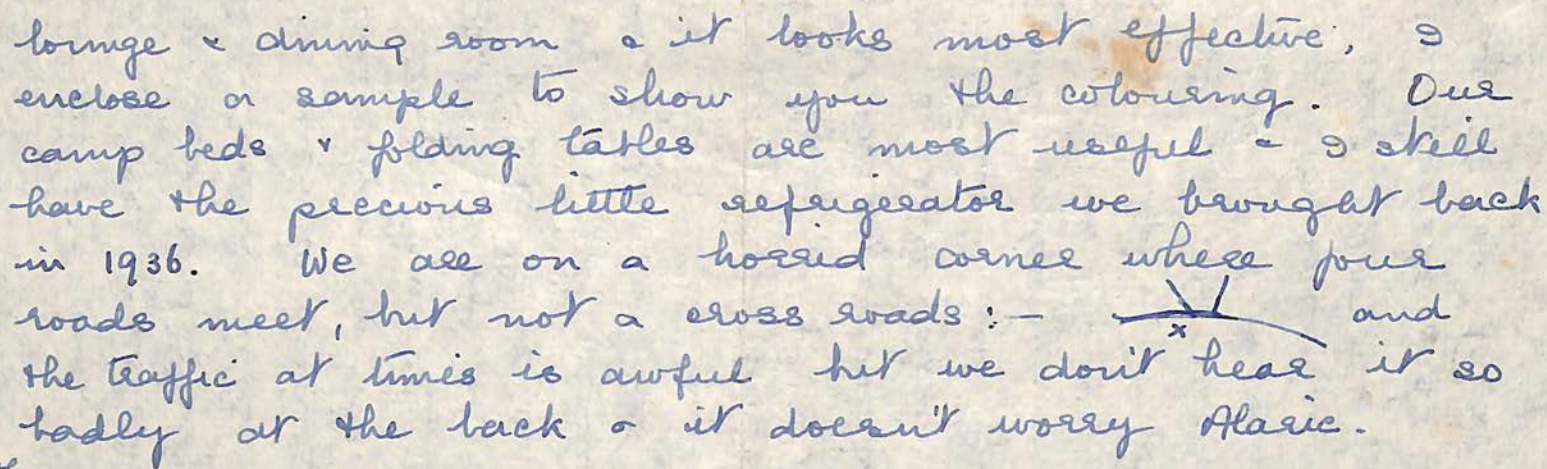 lounge & dining room & it looks most effective, I
enclose a sample to show you the colouring. Our
camp beds & folding tables are most useful & I still
have the precious little refrigerator we brought back
in 1936. We are on a horrid corner where four
roads meet, but not a cross roads :- x and
the traffic at times is awful but we don't hear it so
badly at the back & it doesn't worry Alaric.